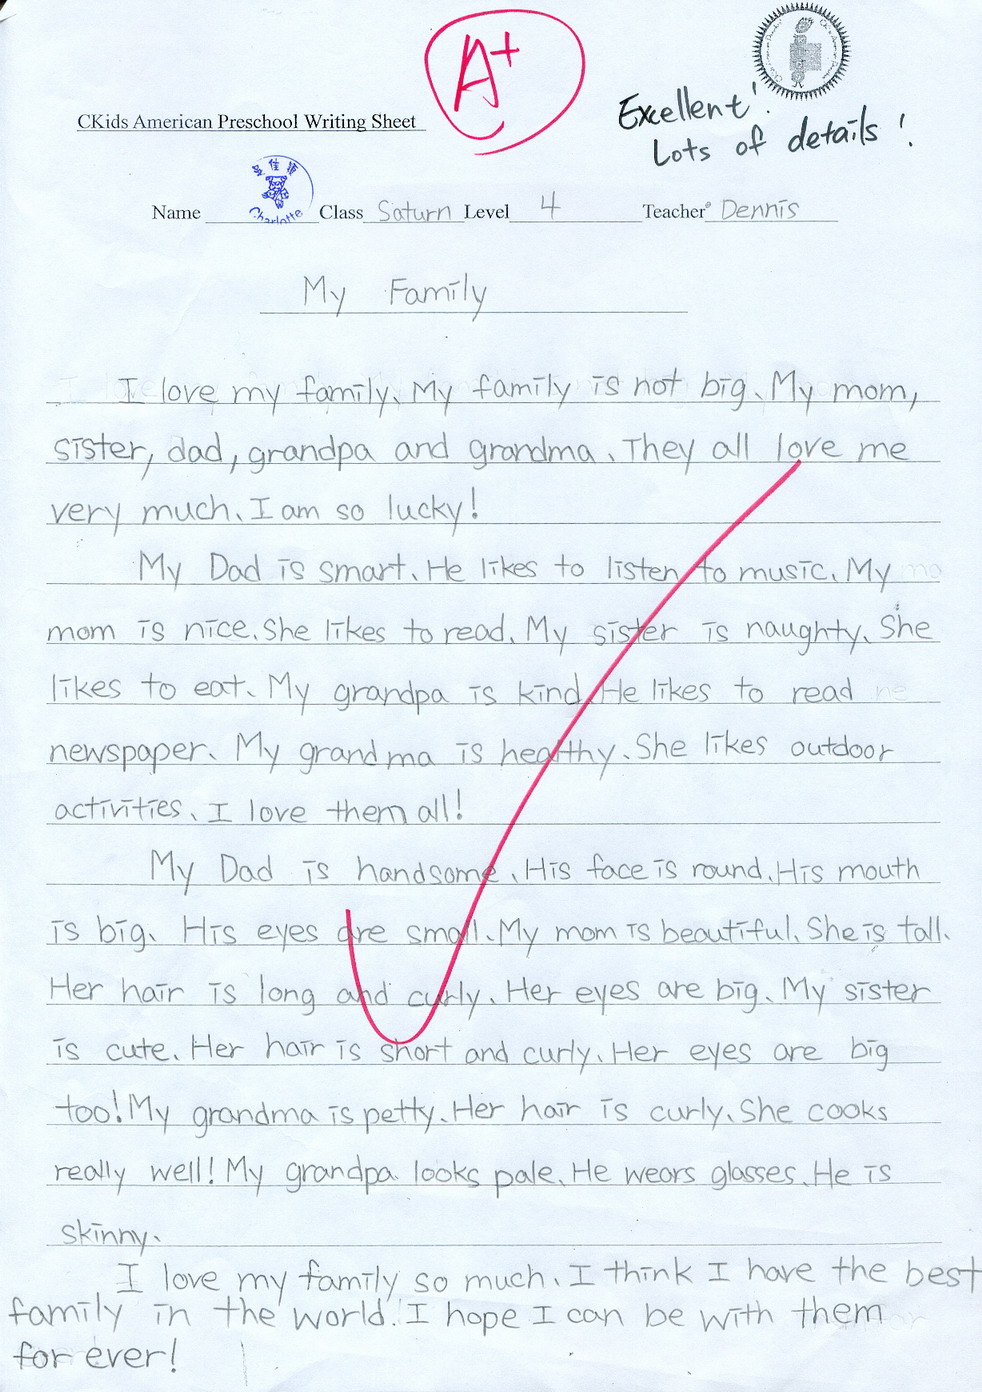 A+
Excellent!
Lots of details!
CKids American Preschool Writing Sheet
Name Charlotte Class Saturn Level 4 Teacher Dennis
My Family
I love my family. My family is not big. My mom,
sister, dad, grandpa and grandma. They all love me
very much. I am so lucky!
My Dad is smart. He likes to listen to music. My
mom is nice. She likes to read. My sister is naughty. She
likes to eat. My grandpa is kind. He likes to read
newspaper. My grandma is healthy. She likes outdoor
activities. I love them all!
My Dad is handsome. His face is round. His mouth
is big. His eyes are small. My mom is beautiful. She is tall.
Her hair is long and curly. Her eyes are big. My sister
is cute. Her hair is short and curly. Her eyes are big
too! My grandma is petty. Her hair is curly. She cooks
really well! My grandpa looks pale. He wears glasses. He is
skinny.
I love my family so much. I think I have the best
family in the world. I hope I can be with them
for ever!